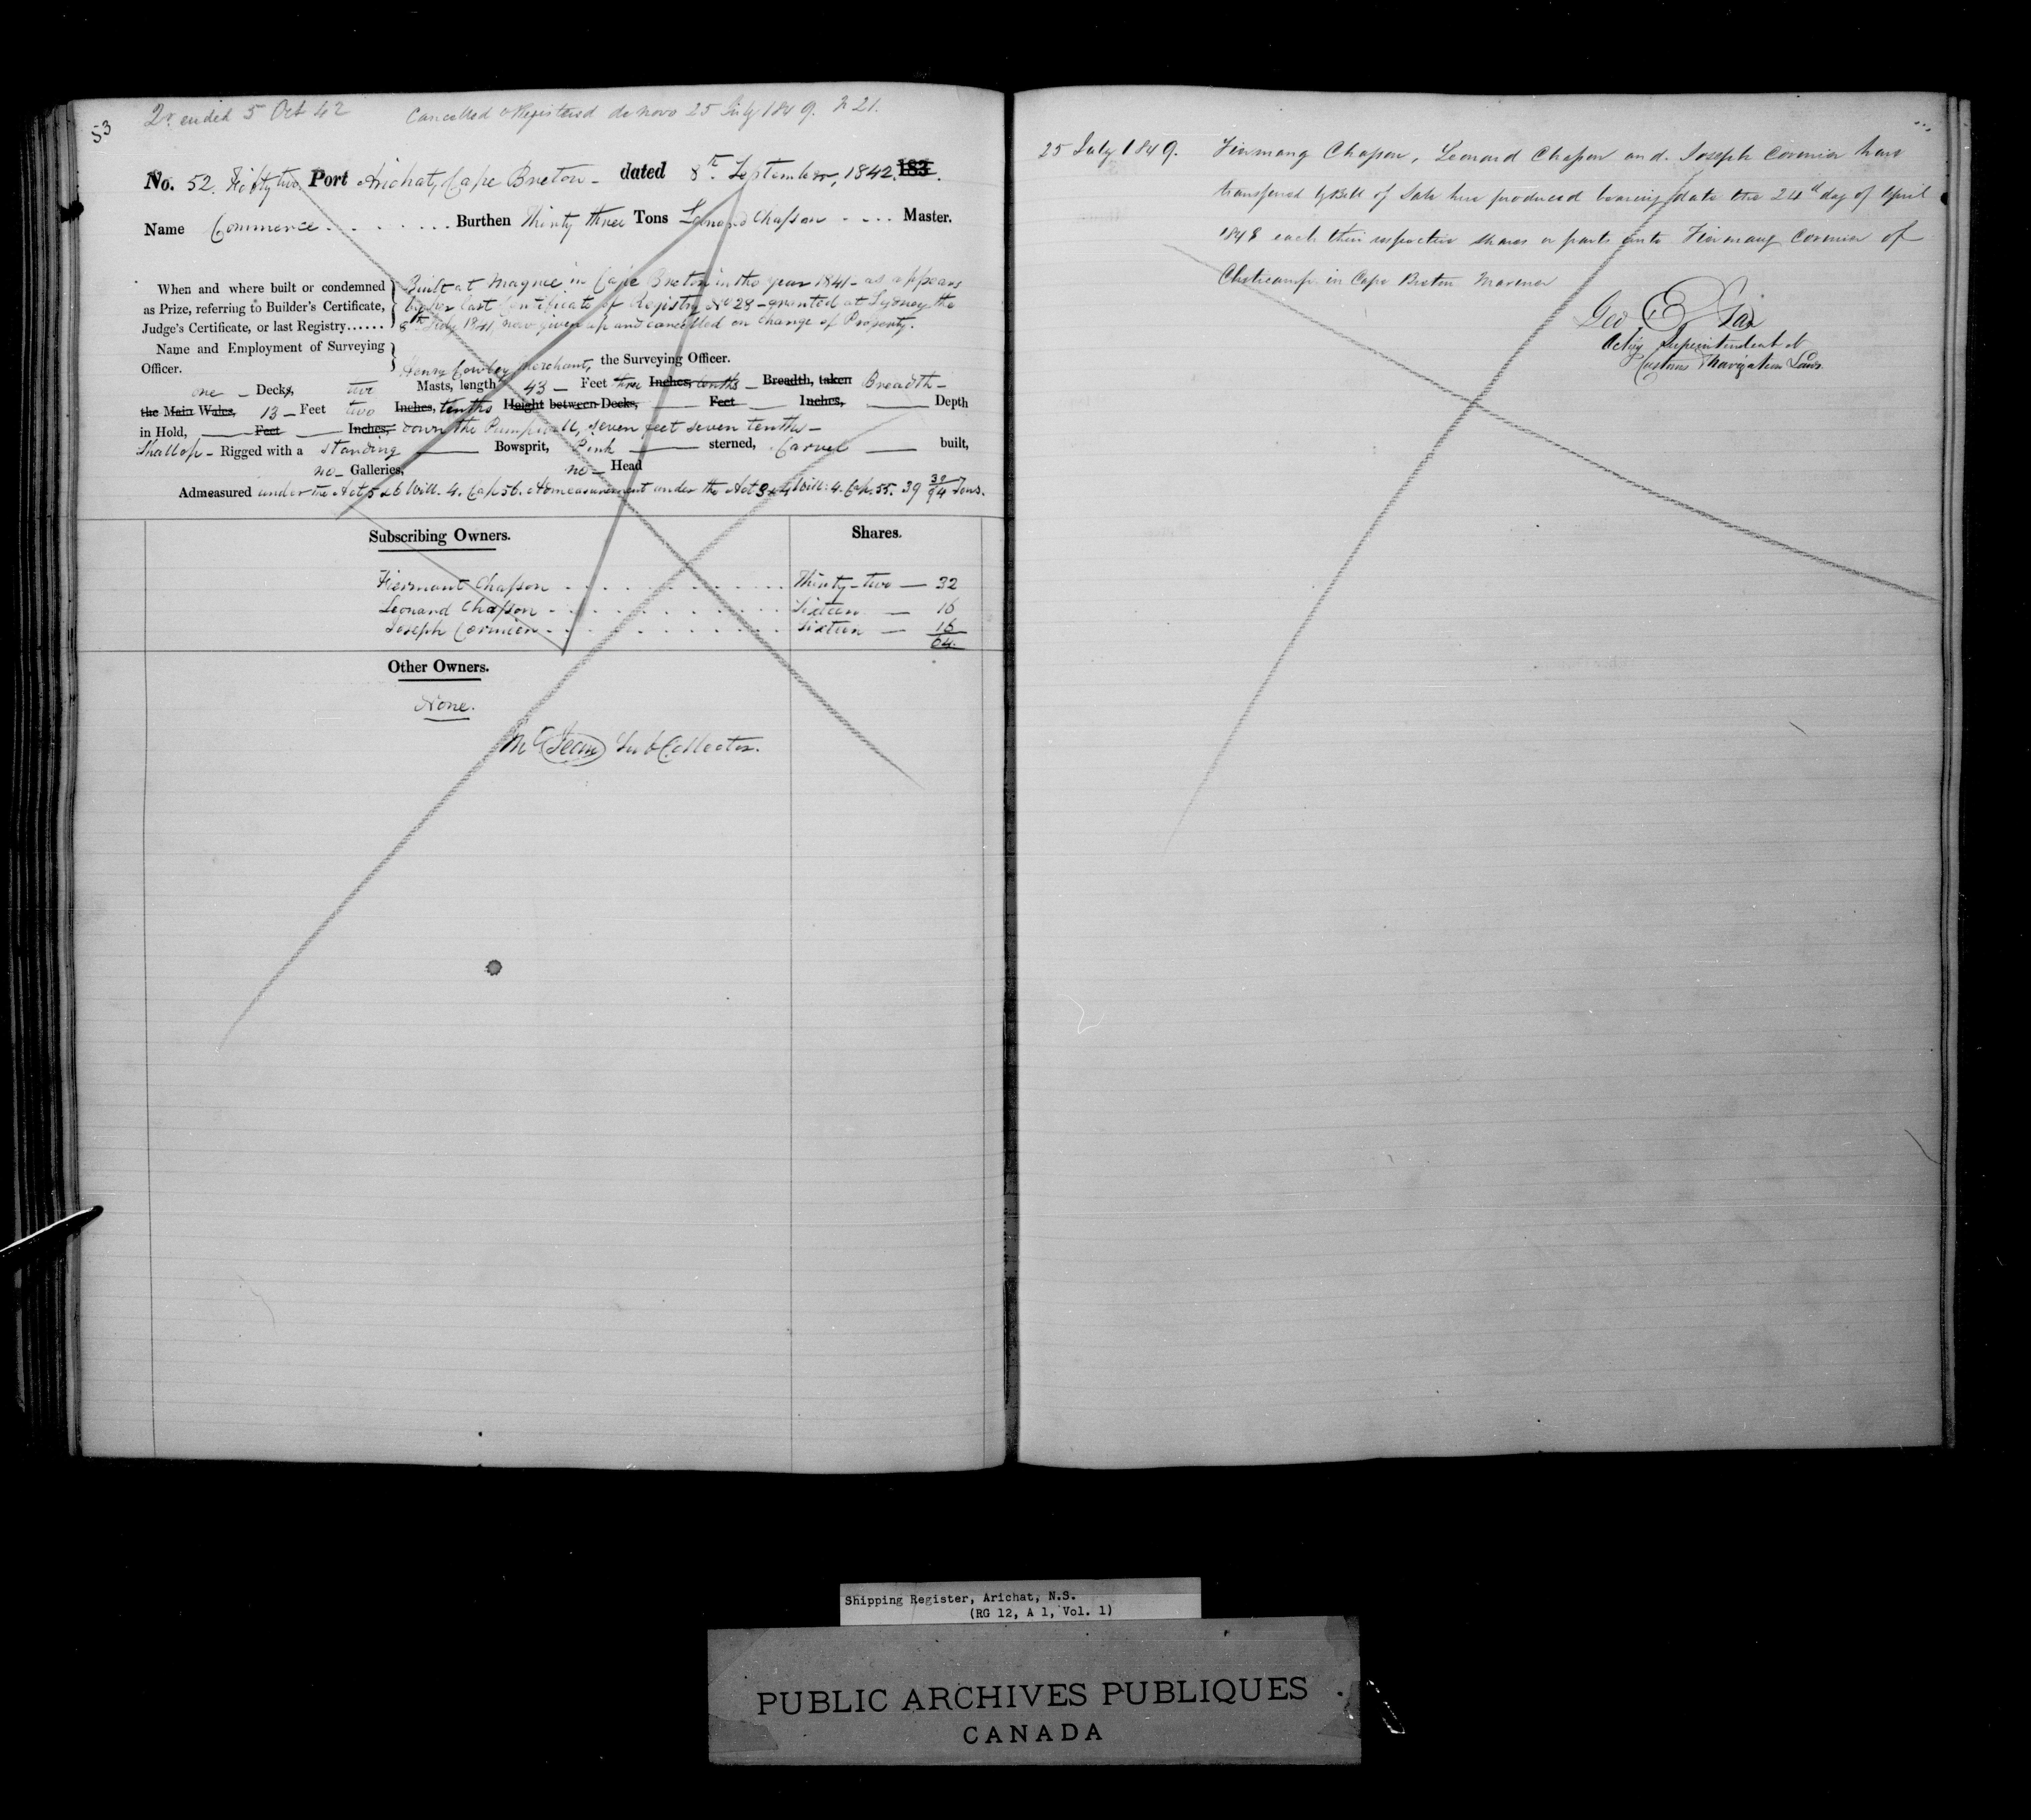 53
ended 5 Oct 42 Cancelled & Registered de novo 25 July 1849. N 21.
No. 52. Fifty two Port Arichat, Cape Breton - dated 8th September, 1842. 183.
Name Commerce . . . . . . . . Burthen Thirty three Tons Leonard Chasson - - . . Master.
When and where built or condemned
as Prize, referring to Builder's Certificate,
Judge's Certificate, or last Registry......
Built at Magrée in Cape Breton in the year 1841 - as appears
by her last Certificate of Registry No 28 - granted at Sydney the
8th July 1841, now given up and cancelled on change of Property.
Name and Employment of Surveying
Officer.
Henry Cowley Merchant, the Surveying Officer.
one - Decks, two Masts, length 43 - Feet three Inches, tenths - Breadth, taken Breadth -
the Main Wales, 13 - Feet two Inches, tenths Height between Decks, Feet Inches, Depth
in Hold, Feet Inches, down the Pumpwell, seven feet seven tenths -
Shallop - Rigged with a standing Bowsprit, Pink sterned, Carvel built,
no - Galleries, no - Head
Admeasured under the Act 5 & 6 Will. 4. Cap. 56. Admeasurement under the Act 3 & 4 Will: 4. Cap. 55. 39 30/94 Tons.
Subscribing Owners. Shares.
Fiermant Chasson - . . . . . . . . . . . Thirty-two — 32
Leonard Chasson - . . . . . . . . . . . Sixteen — 16
Joseph Cormier - . . . . . . . . . . . Sixteen — 16
64.
Other Owners.
None.
Sub Collector.
25 July 1849. Firmang Chasson, Leonard Chasson and Joseph Cormier have
transferred by Bill of Sale here produced bearing date the 24th day of April
1848 each their respective shares or parts unto Firmang Cormier of
Cheticamp in Cape Breton Mariner
Geo E
Acting Superintendent of
Customs & Navigation Laws
Shipping Register, Arichat, N.S.
(RG 12, A 1, Vol. 1)
PUBLIC ARCHIVES PUBLIQUES
CANADA